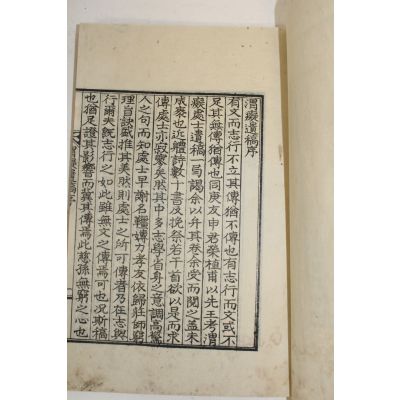 渭癡遺稿序
有文而志行不立其傳猶不傳也有志行而文或不
足其無傳猶傳也同庚友申君榮植甫以先王考渭
癡處士遺稿一局謁余以弁其卷余受而閱之盖未
成袠也近軆詩數十書及挽祭若干首欲以是而求
傳處士亦寂寥矣然其中多志學貞身之意調高驚
人之句而知處士早謝名韁專力孝友依歸莊師窮
理自讀蔵推其美然則處士之所可傳者乃在志與
行爾夫旣志行之如此雖無文之傳焉可也况斯稿
也猶足證其影響而冀其傳焉此慈孫無窮之心也